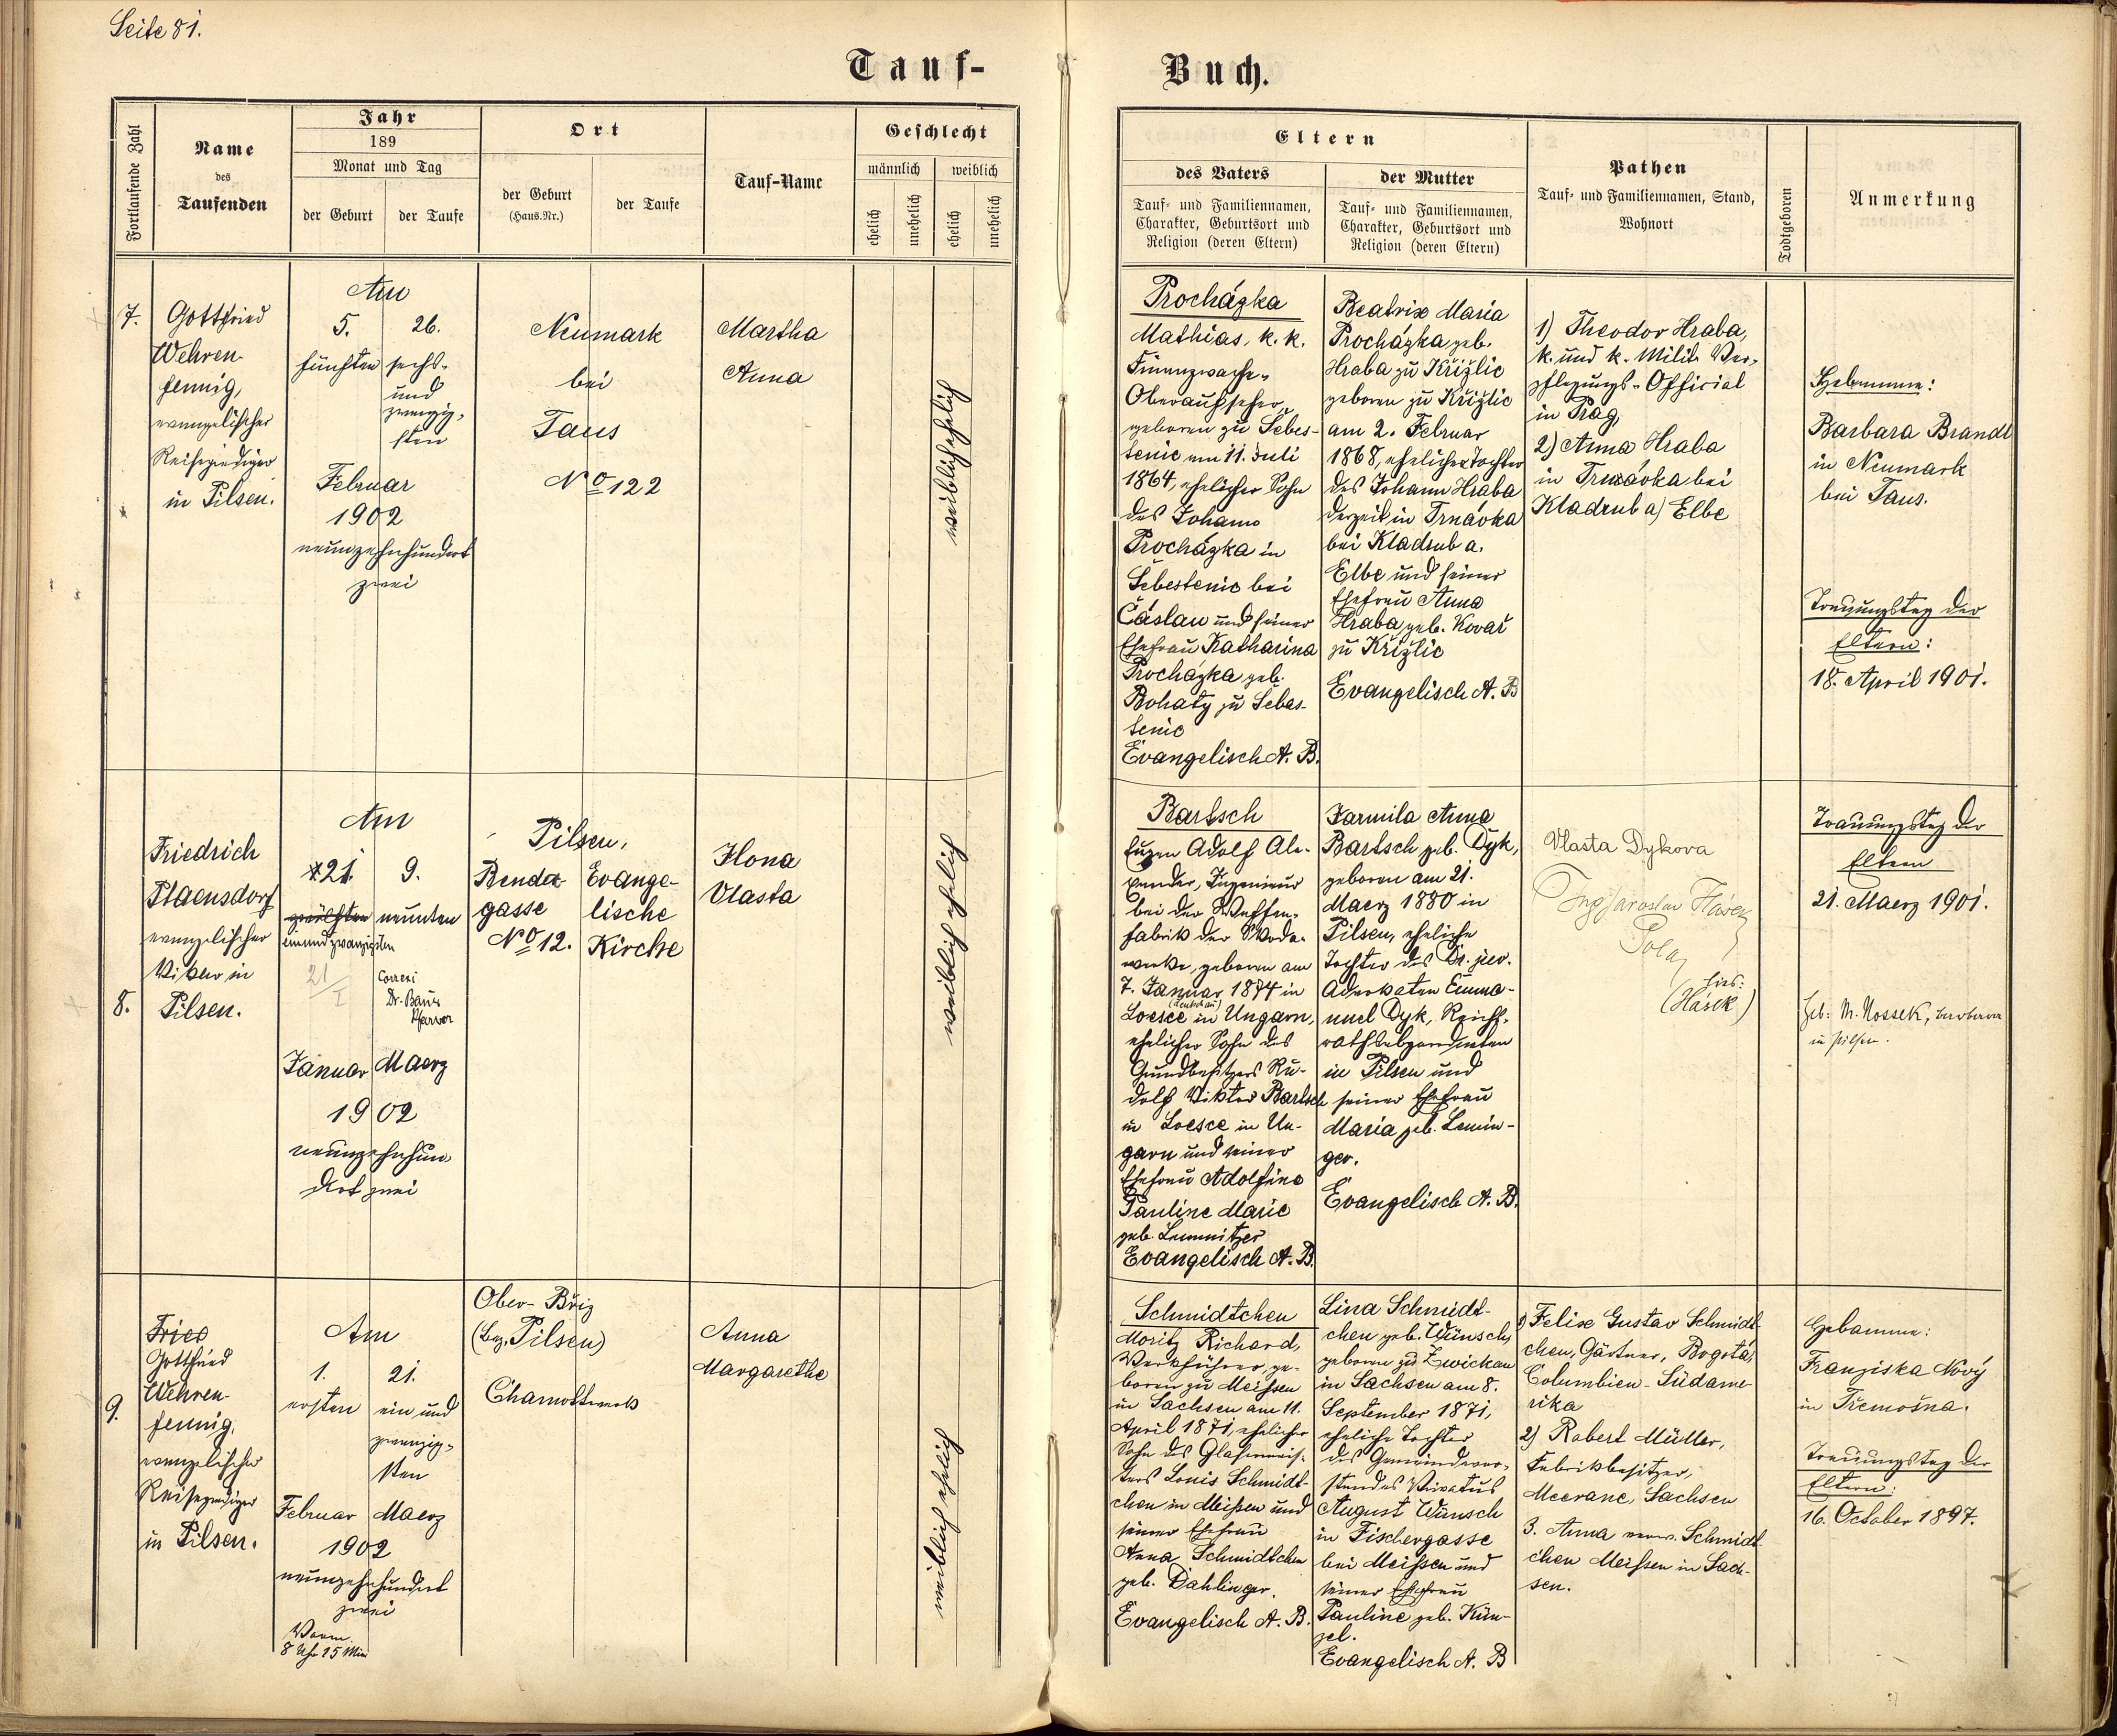 Seite 81.
Tauf-
Buch.
Fortlaufende Zahl
Name
des
Taufenden
Jahr
189
Monat und Tag
der Geburt
der Taufe
Ort
der Geburt
(Haus.Nr.)
der Taufe
Tauf-Name
Geschlecht
männlich
weiblich
ehelich
unehelich
ehelich
unehelich
Eltern
des Vaters
Tauf- und Familiennamen,
Charakter, Geburtsort und
Religion (deren Eltern)
der Mutter
Tauf- und Familiennamen,
Charakter, Geburtsort und
Religion (deren Eltern)
Pathen
Tauf- und Familiennamen, Stand,
Wohnort
Todtgeboren
Anmerkung
7.
Gottfried
Wehren-
fennig,
evangelischer
Reiseprediger
in Pilsen.
Am
5.
fünften
26.
sechs-
und
zwanzig-
sten
Februar
1902
neunzehnhundert
zwei
Neumark
bei
Taus
No 122
Martha
Anna
weiblich ehelich
Procházka
Mathias, k. k.
Finanzwache-
Oberaufseher
geboren zu Šebes-
tenic am 11. Juli
1864, ehelicher Sohn
des Johann
Procházka in
Šebestenic bei
Čáslau und seiner
Ehefrau Katharina
Procházka geb.
Bohatý zu Šebes-
tenic
Evangelisch A. B.
Beatrix Maria
Procházka geb.
Hraba zu Křižlic
geboren zu Křižlic
am 2. Februar
1868, eheliche Tochter
des Johann Hraba
derzeit in Trnávka
bei Kladrub a.
Elbe und seiner
Ehefrau Anna
Hraba geb. Kovář
zu Křižlic
Evangelisch A. B
1) Theodor Hraba,
k. und k. Milit. Ver-
pflegungs-Official
in Prag,
2) Anna Hraba
in Trnávka bei
Kladrub a) Elbe
Hebamme:
Barbara Brandl
in Neumark
bei Taus.
Trauungstag der
Eltern:
18. April 1901.
8.
Friedrich
Plaensdorf
evangelischer
Vikar in
Pilsen.
Am
21.
zwölften
einundzwanzigsten
21/I
9.
neunten
Correxi
Dr. Baur
Pfarrer
Januar
Maerz
1902
neunzehnhun-
dert zwei
Pilsen,
Benda-
gasse
No 12.
Evange-
lische
Kirche
Ilona
Vlasta
weiblich ehelich
Bartsch
Eugen Adolf Ale-
xander, Ingenieur
bei der Waffen-
fabrik der Skoda-
werke, geboren am
7. Januar 1874 in
(Leutschau)
Loesce in Ungarn,
ehelicher Sohn des
Grundbesitzers Ru-
dolf Viktor Bartsch
in Loesce in Un-
garn und seiner
Ehefrau Adolfine
Pauline Marie
geb. Lemnitzer
Evangelisch A. B.
Jarmila Anna
Bartsch geb. Dyk,
geboren am 21.
Maerz 1880 in
Pilsen, eheliche
Tochter des Dr. jur.
Advokaten Emma-
nuel Dyk, Reichs-
rathsabgeordneten
in Pilsen und
seiner Ehefrau
Maria geb. Lemin-
ger.
Evangelisch A. B.
Vlasta Dykova
Ing Jaroslav Hásek
(Hásek)
Trauungstag der
Eltern
21. Maerz 1901.
Heb: M. Nossek,
in Pilsen.
9.
Fried
Gottfried
Wehren-
fennig,
evangelischer
Reiseprediger
in Pilsen.
Am
1.
ersten
21.
ein und
zwanzig-
sten
Februar
Maerz
1902
neunzehnhundert
zwei
Vorm.
8 Uhr 15 Min
Ober-Bříz
(Bez. Pilsen)
Chamottwerk
Anna
Margarethe
weiblich ehelich
Schmidtchen
Moritz Richard,
Werkführer ge-
boren zu Meissen
in Sachsen am 11.
April 1871, ehelicher
Sohn des Glasermeis-
ters Louis Schmidt-
chen in Meissen und
seiner Ehefrau
Anna Schmidtchen
geb. Dahlinger.
Evangelisch A. B.
Lina Schmidt-
chen geb. Wünsch,
geboren zu Zwickau
in Sachsen am 8.
September 1871,
eheliche Tochter
des Gemeindevor-
standes Privatus
August Wünsch
in Fischergasse
bei Meissen und
seiner Ehefrau
Pauline geb. Kün-
zel.
Evangelisch A. B
1) Felix Gustav Schmidt-
chen, Gärtner, Bogotá,
Columbien-Südame-
rika
2) Robert Müller,
Fabrikbesitzer,
Meerane, Sachsen
3. Anna verw. Schmidt-
chen Meissen in Sach-
sen.
Hebamme:
Franziska Nový
in Třemošna.
Trauungstag der
Eltern:
16. October 1897.